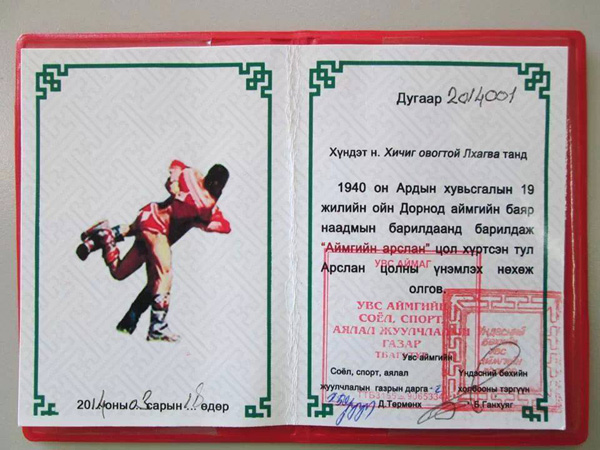 2014 оны 03 сарын 18 өдөр
Дугаар 2014001
Хүндэт н. Хичиг овогтой Лхагва танд
1940 он Ардын хувьсгалын 19
жилийн ойн Дорнод аймгийн баяр
наадмын барилдаанд барилдаж
"Аймгийн арслан" цол хүртсэн тул
Арслан цолны үнэмлэх нөхөж
олгов.
УВС АЙМАГ
УВС АЙМГИЙН
СОЁЛ, СПОРТ,
АЯЛАЛ ЖУУЛЧЛАЛЫН
ГАЗАР
ҮНДЭСНИЙ
БӨХИЙН
УВС
Увс аймгийн
Соёл, спорт, аялал
жуулчлалын газрын дарга
Д.Төрмөнх
Үндэсний бөхийн
холбооны тэргүүн
Б.Ганхуяг